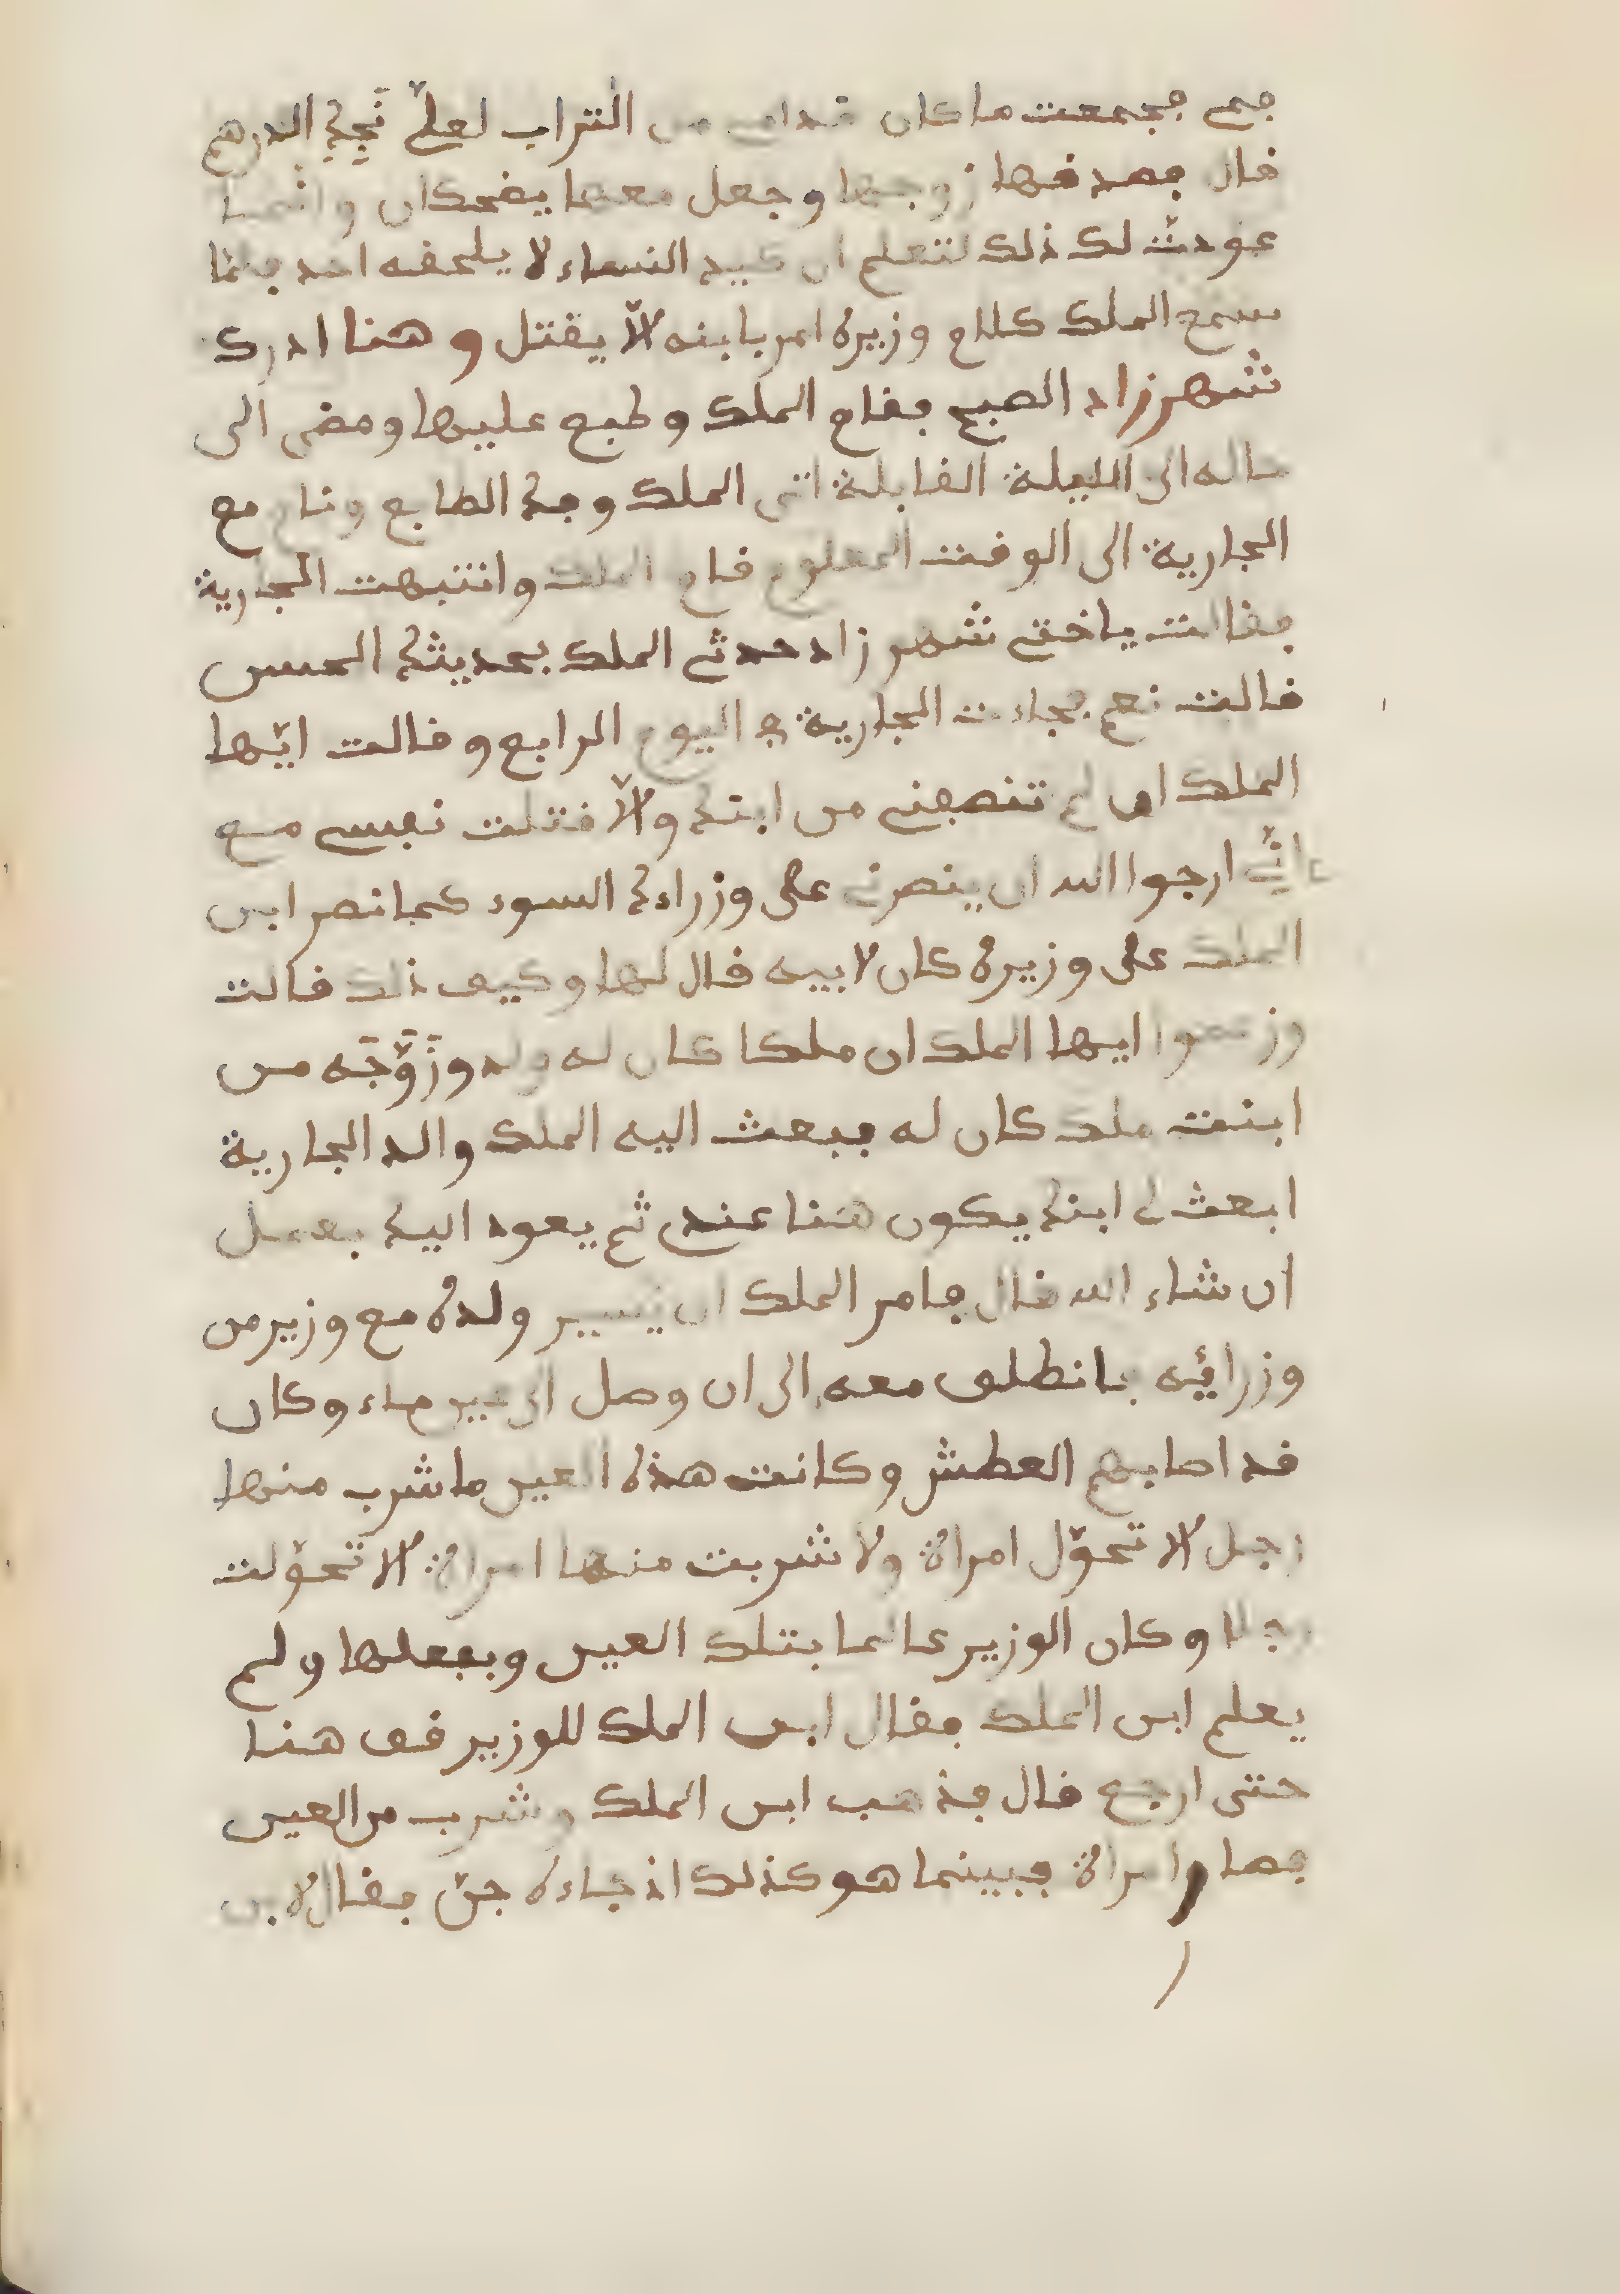 فمي فجمعت ما كان قدامي من التراب لعلّي نَجِدُ الدرهم
قال فصدقها زوجها وجعل معها يضحكان وانّما
عودتّ لك ذلك لتعلم ان كيد النساء لا يلحقه احد فلمّا
سمع الملك كلام وزيره امر بابنه الّا يقتل وهنا ادرك
شهرزاد الصبح فقام الملك وطبع عليها ومضى الى
حاله الى الليلة القابلة اتى الملك وفكّ الطابع ونام مع
الجارية الى الوقت المعلوم قام الملك وانتبهت الجارية
فقالت ياختي شهرزاد حدثي الملك بحديثك الحسن
قالت نعم فجاءت الجارية في اليوم الرابع وقالت ايّها
الملك ان لم تنصفني من ابنك والّا قتلت نفسي مع
انّي ارجوا الله ان ينصرني على وزراءك السوء كما نصر ابن
الملك على وزيره كان لابيه قال لها وكيف ذلك قالت
وزعموا ايها الملك ان ملكا كان له ولد وزَوَّجَه من
ابنت ملك كان له فبعث اليه الملك والد الجارية
ابعث لي ابنك يكون هنا عندي ثم يعود اليك بعسل
ان شاء الله قال فامر الملك ان يسير ولده مع وزير من
وزرائه فانطلق معه الى ان وصل الى عين ماء وكان
قد اصابهم العطش وكانت هذه العين ما شرب منها
رجل الا تحوّل امراة ولا شربت منها امراة الا تحوّلت
رجلا وكان الوزير عالما بتلك العين وبفعلها ولم
يعلم ابن الملك فقال ابن الملك للوزير قف هنا
حتى ارجع قال فذهب ابن الملك وشرب من العين
فصار امراة فبينما هو كذلك اذ جاءه جنّ فقال لابن